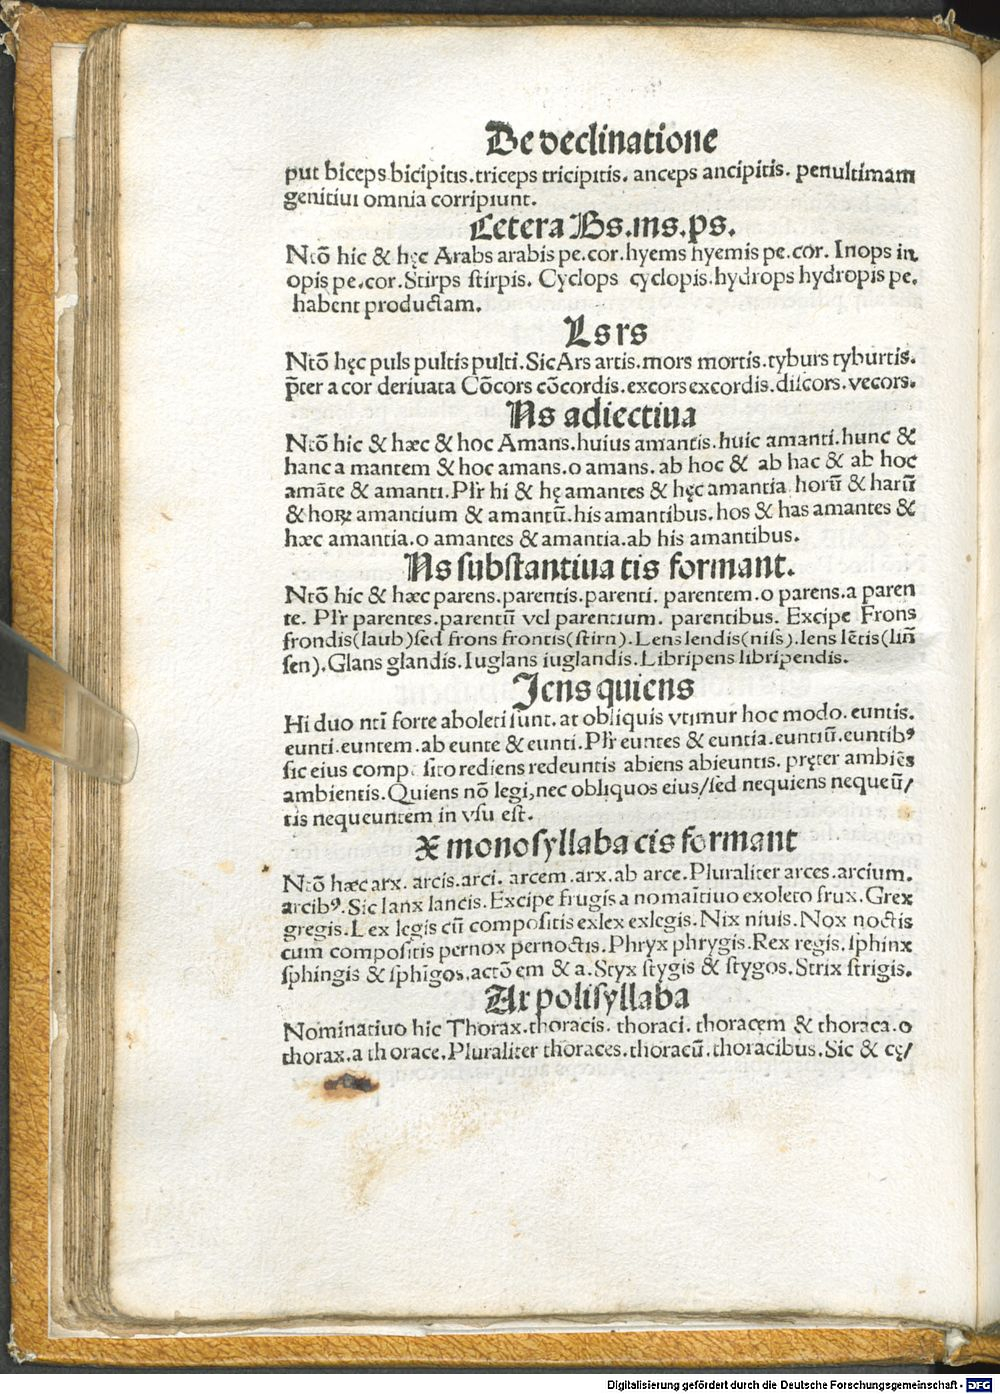 De declinatione
put biceps bicipitis.triceps tricipitis. anceps ancipitis. penultimam
genitiui omnia corripiunt.
Cetera Bs.ms.ps.
Ntō hic & hęc Arabs arabis pe.cor.hyems hyemis pe.cor. Inops in
opis pe.cor.Stirps stirpis. Cyclops cyclopis.hydrops hydropis pe.
habent productam.
Ls rs
Ntō hęc puls pultis pulti.Sic Ars artis.mors mortis.tyburs tyburtis.
p̄ter a cor deriuata Cōcors cōcordis.excors excordis.discors.vecors.
Ns adiectiua
Ntō hic & hæc & hoc Amans.huius amantis.huic amanti.hunc &
hanc a mantem & hoc amans.o amans. ab hoc & ab hac & ab hoc
amāte & amanti.Plr̄ hi & hę amantes & hęc amantia horū & harū
& hoꝝ amantium & amantū.his amantibus.hos & has amantes &
hæc amantia.o amantes & amantia.ab his amantibus.
Ns substantiua tis formant.
Ntō hic & hæc parens.parentis.parenti. parentem.o parens.a paren
te. Plr̄ parentes.parentū vel parentium. parentibus. Excipe Frons
frondis(laub)sed frons frontis(stirn).Lens lendis(niſſ).lens lētis(lin̄
sen).Glans glandis.Iuglans iuglandis.Libripens libripendis.
Iens quiens
Hi duo nti forte aboleti sunt. at obliquis vtimur hoc modo. euntis.
eunti.euntem.ab eunte & eunti.Plr̄ euntes & euntia.euntiū.euntibꝰ
sic eius comp sito rediens redeuntis abiens abieuntis. pręter ambiēs
ambientis.Quiens nō legi,nec obliquos eius/sed nequiens nequeū/
tis nequeuntem in vsu est.
X monosyllaba cis formant
Ntō hæc arx. arcis.arci. arcem.arx.ab arce.Pluraliter arces.arcium.
arcibꝰ.Sic lanx lancis.Excipe frugis a nomaītiuo exoleto frux.Grex
gregis.Lex legis cū compositis exlex exlegis.Nix niuis.Nox noctis
cum compositis pernox pernoctis.Phryx phrygis.Rex regis.sphinx
sphingis & sphīgos.actō em & a.Styx stygis & stygos.Strix strigis.
Ax polisyllaba
Nominatiuo hic Thorax.thoracis. thoraci. thoracem & thoraca.o
thorax.a th orace.Pluraliter thoraces.thoracū.thoracibus.Sic & cę/
Digitalisierung gefördert durch die Deutsche Forschungsgemeinschaft - DFG